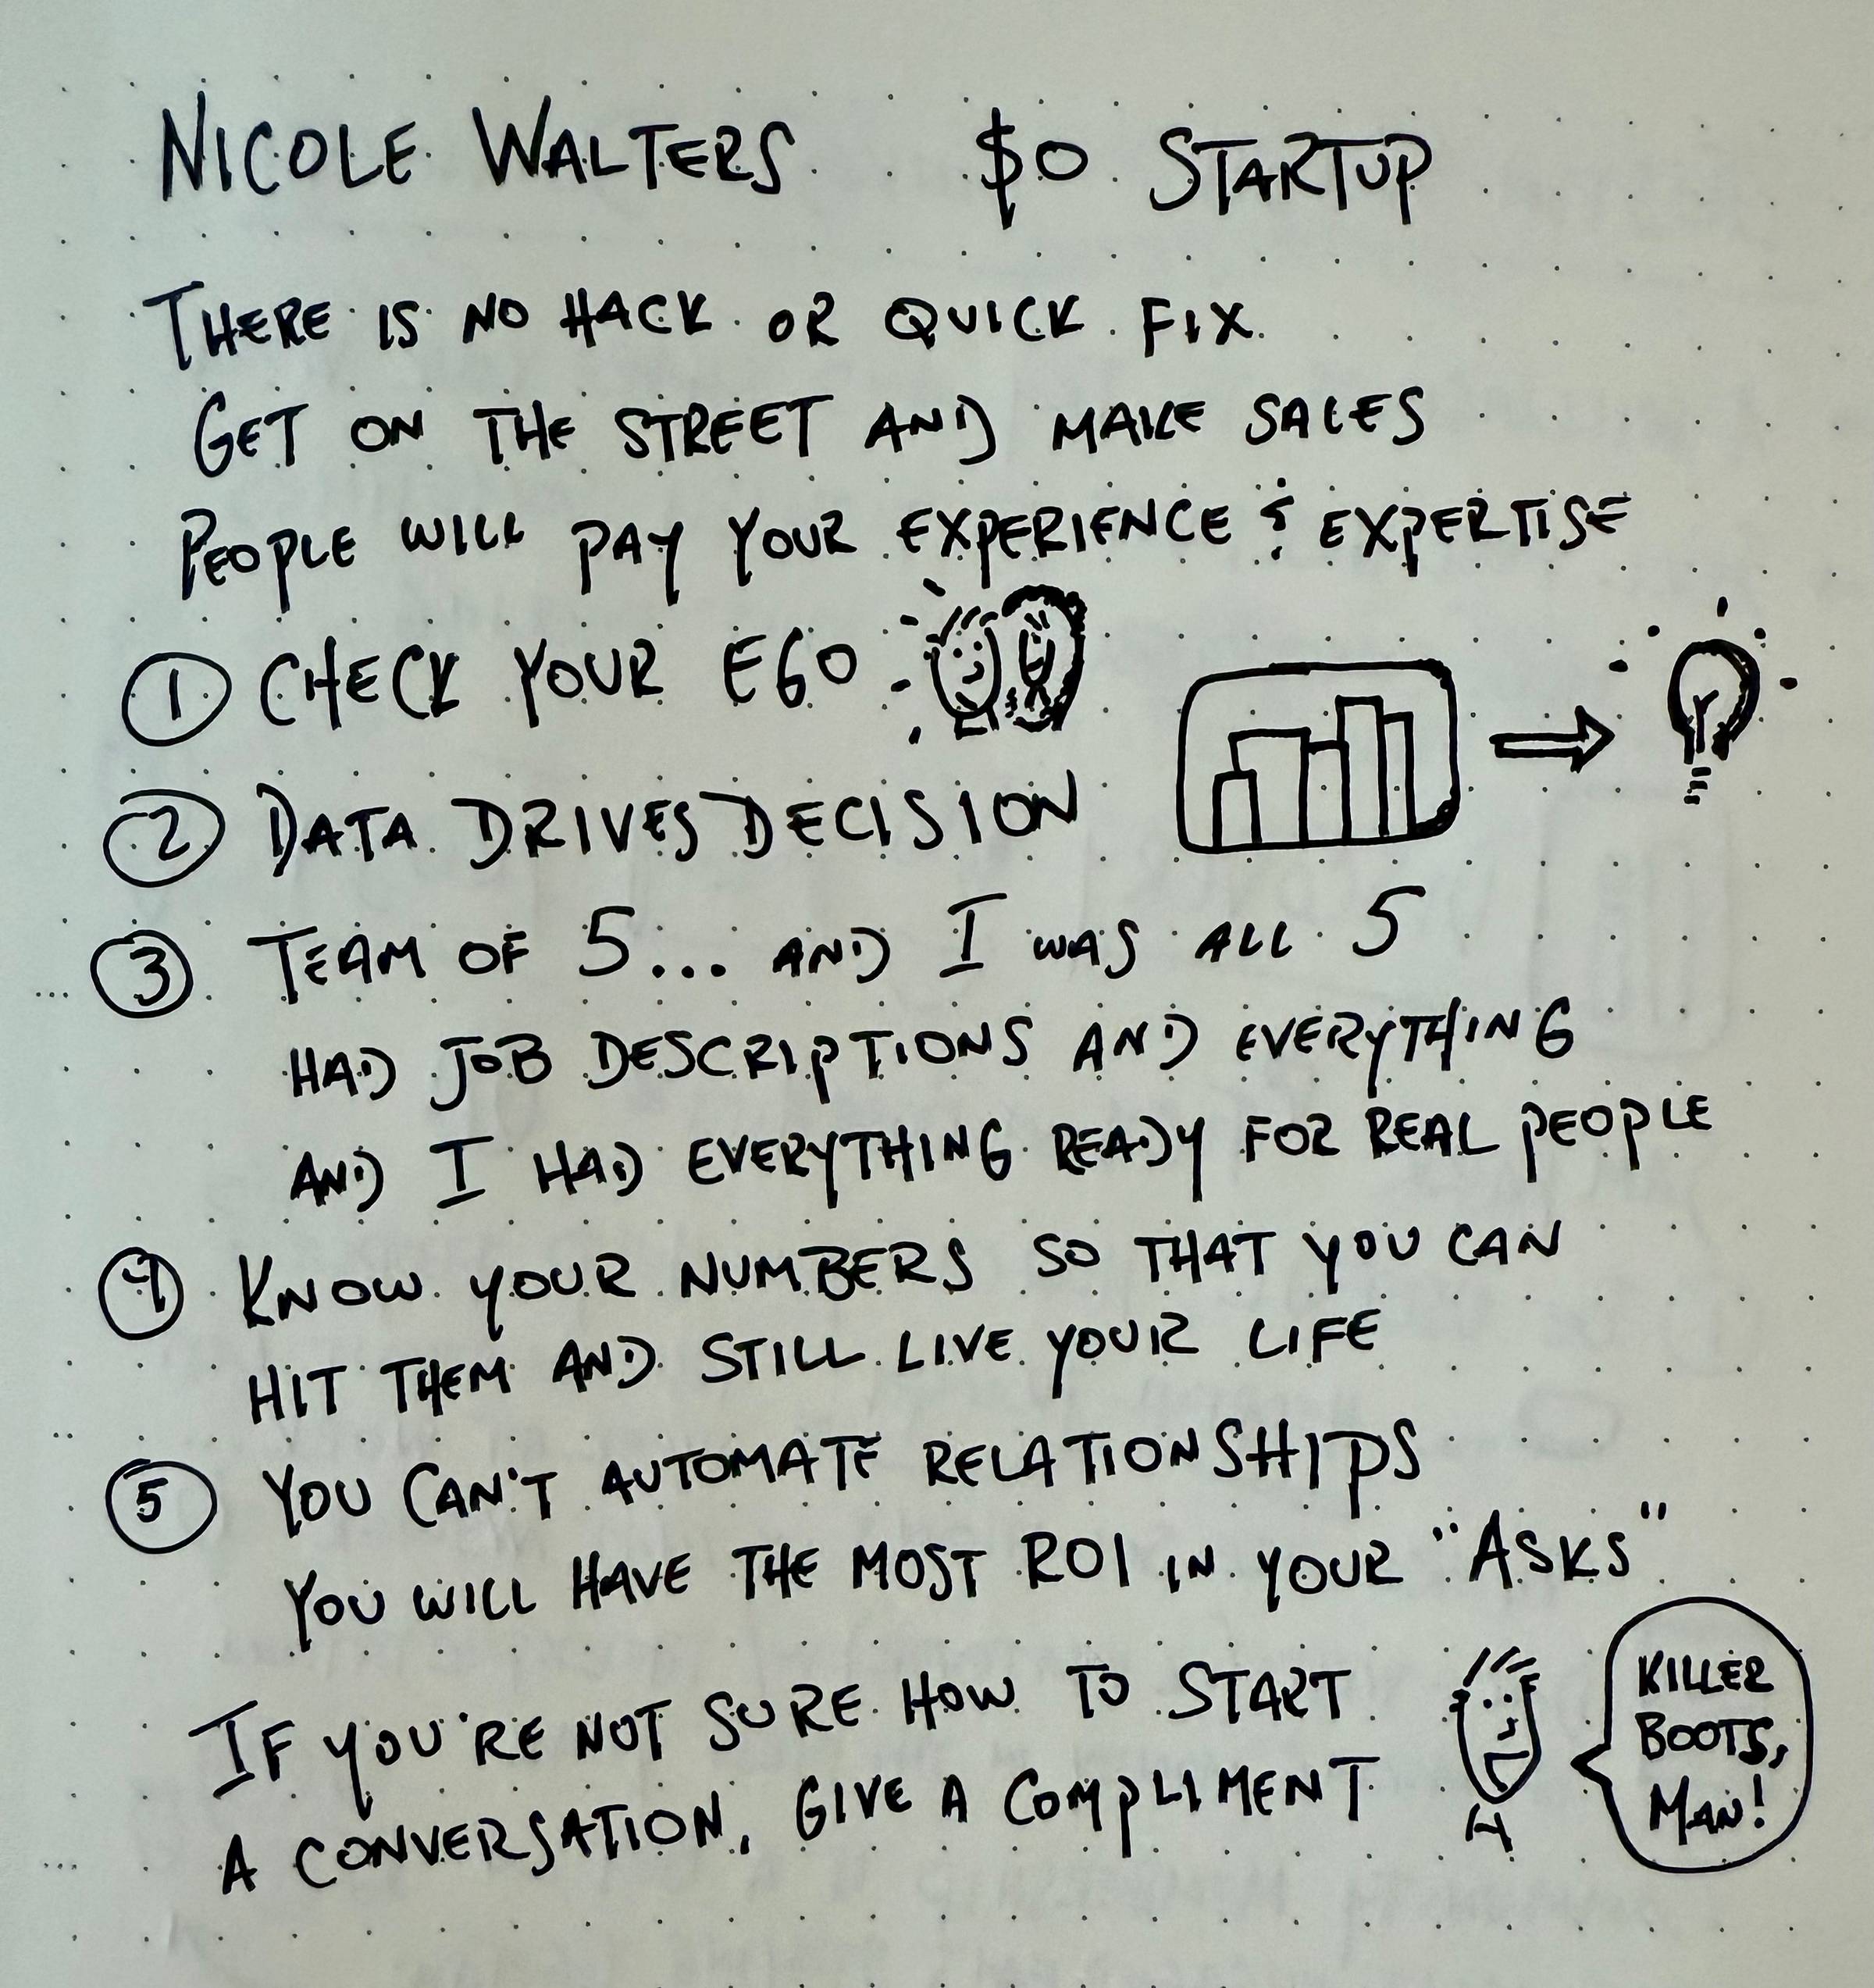 NICOLE WALTERS $0 STARTUP
THERE IS NO HACK OR QUICK FIX.
GET ON THE STREET AND MAKE SALES
PEOPLE WILL PAY YOUR EXPERIENCE & EXPERTISE
1 CHECK YOUR EGO
2 DATA DRIVES DECISION
3 TEAM OF 5... AND I WAS ALL 5
HAD JOB DESCRIPTIONS AND EVERYTHING
AND I HAD EVERYTHING READY FOR REAL PEOPLE
4 KNOW YOUR NUMBERS SO THAT YOU CAN
HIT THEM AND STILL LIVE YOUR LIFE
5 YOU CAN'T AUTOMATE RELATIONSHIPS
YOU WILL HAVE THE MOST ROI IN YOUR "ASKS"
IF YOU'RE NOT SURE HOW TO START
A CONVERSATION, GIVE A COMPLIMENT
KILLER
BOOTS,
MAN!